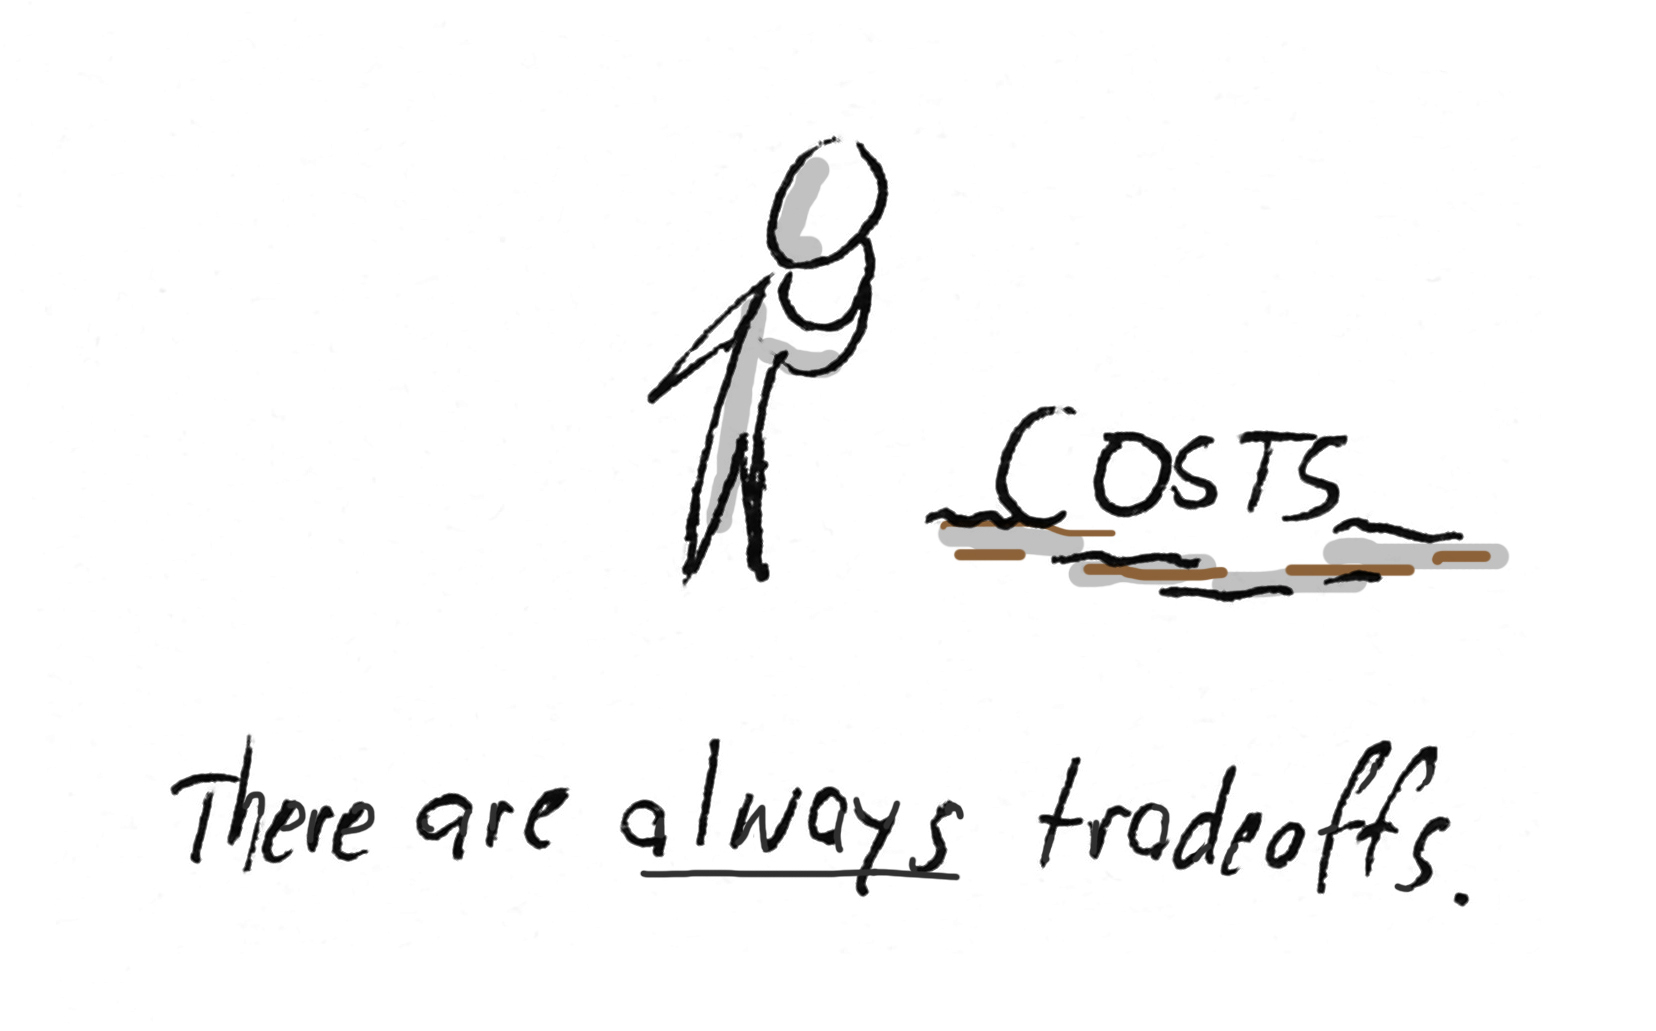 COSTS
There are always tradeoffs.